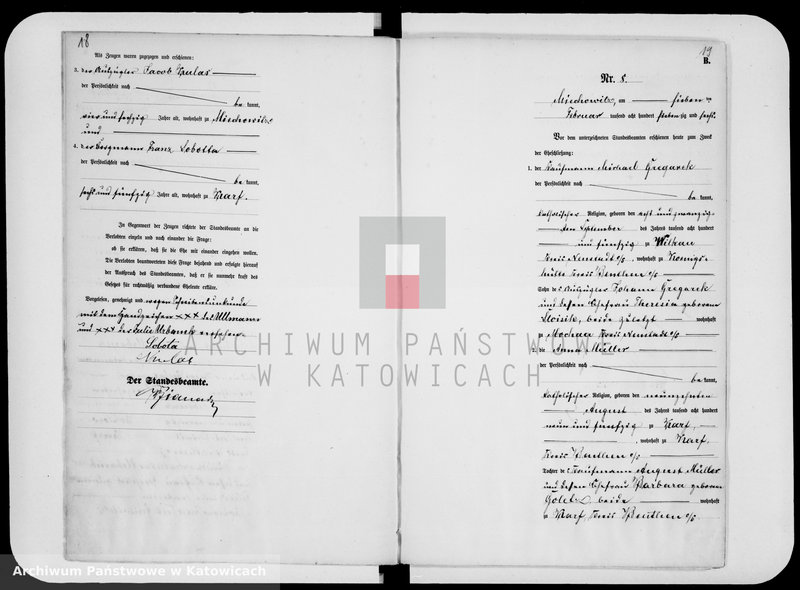 18
Als Zeugen waren zugezogen und erschienen:
3. der Jacob
der Persönlichkeit nach
be kannt,
vier und sechzig Jahre alt, wohnhaft zu Miechowitz
und
4. der Bergmann Franz Sobotta
der Persönlichkeit nach
be kannt,
sechs und fünfzig Jahre alt, wohnhaft zu Karf.
In Gegenwart der Zeugen richtete der Standesbeamte an die
Verlobten einzeln und nach einander die Frage:
ob sie erklären, daß sie die Ehe mit einander eingehen wollen.
Die Verlobten beantworteten diese Frage bejahend und erfolgte hierauf
der Ausspruch des Standesbeamten, daß er sie nunmehr kraft des
Gesetzes für rechtmäßig verbundene Eheleute erkläre.
Vorgelesen, genehmigt und wegen Schreibensunkunde
mit dem Handzeichen xxx des Ullmann
und xxx der Julie Urbanek versehen
Sobota
Der Standesbeamte.
19
B.
Nr. 8.
Miechowitz, am sieben ten
Februar tausend acht hundert siebenzig und sechs.
Vor dem unterzeichneten Standesbeamten erschienen heute zum Zweck
der Eheschließung:
1. der Kaufmann Michael Gregarek
der Persönlichkeit nach
be kannt,
katholischer Religion, geboren den acht und zwanzig-
sten September des Jahres tausend acht hundert
und fünfzig zu
Kreis Neustadt o/s, wohnhaft zu Koenigs-
hütte Kreis Beuthen o/s
Sohn des Johann Gregarek
und dessen Ehefrau Theresia geborenen
beide zuletzt wohnhaft
zu Mochau Kreis Neustadt o/s
2. die Anna Müller
der Persönlichkeit nach
be kannt,
katholischer Religion, geboren den neunzehnten
August des Jahres tausend acht hundert
neun und fünfzig zu Karf,
, wohnhaft zu Karf,
Kreis Beuthen o/s
Tochter des Kaufmann August Müller
und dessen Ehefrau Barbara geborenen
beide wohnhaft
zu Karf, Kreis Beuthen o/s.
ARCHIWUM PAŃSTWOWE
W KATOWICACH
Archiwum Państwowe w Katowicach